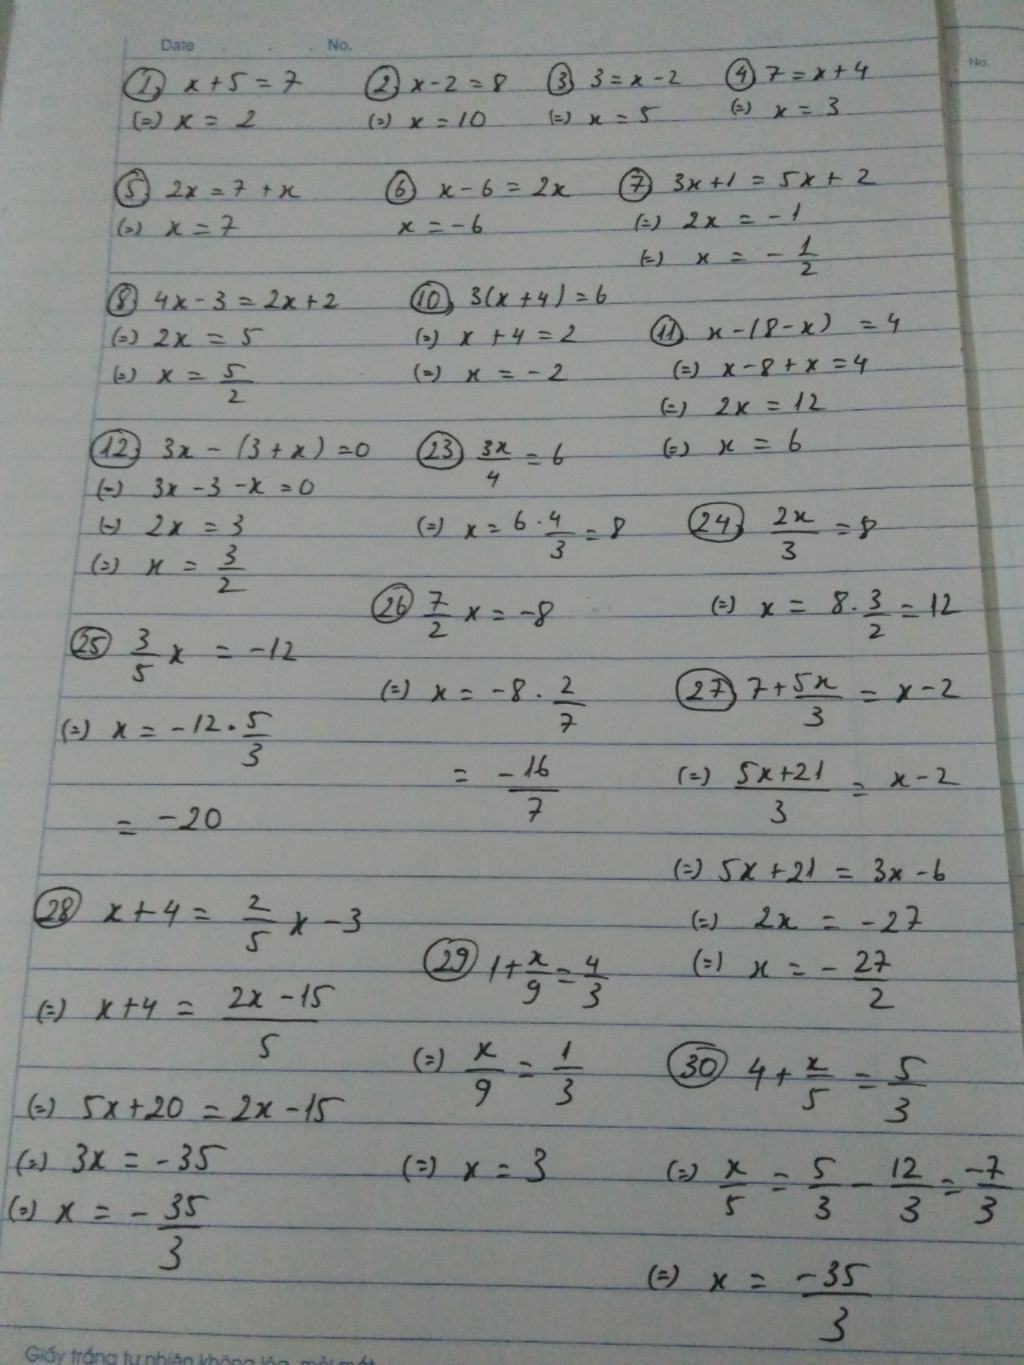 Date . . . No.
No.
① x + 5 = 7 ② x - 2 = 8 ③ 3 = x - 2 ④ 7 = x + 4
(=) x = 2 (=) x = 10 (=) x = 5 (=) x = 3
⑤ 2x = 7 + x ⑥ x - 6 = 2x ⑦ 3x + 1 = 5x + 2
(=) x = 7 x = -6 (=) 2x = -1
(=) x = -1/2
⑧ 4x - 3 = 2x + 2 ⑩ 3(x + 4) = 6
(=) 2x = 5 (=) x + 4 = 2 ⑪ x - (8 - x) = 4
(=) x = 5/2 (=) x = -2 (=) x - 8 + x = 4
(=) 2x = 12
⑫ 3x - (3 + x) = 0 ㉓ 3x/4 = 6 (=) x = 6
(=) 3x - 3 - x = 0
(=) 2x = 3 (=) x = 6 . 4/3 = 8 ㉔ 2x/3 = 8
(=) x = 3/2
㉖ 7/2 x = -8 (=) x = 8 . 3/2 = 12
㉕ 3/5 x = -12
(=) x = -8 . 2/7 ㉗ 7 + 5x/3 = x - 2
(=) x = -12 . 5/3
= -16/7 (=) 5x+21/3 = x - 2
= -20
(=) 5x + 21 = 3x - 6
㉘ x + 4 = 2/5 x - 3 (=) 2x = -27
㉙ 1 + x/9 = 4/3 (=) x = -27/2
(=) x + 4 = 2x - 15/5
(=) x/9 = 1/3 ㉚ 4 + x/5 = 5/3
(=) 5x + 20 = 2x - 15
(=) 3x = -35 (=) x = 3 (=) x/5 = 5/3 - 12/3 = -7/3
(=) x = -35/3
(=) x = -35/3
Giấy trắng tự nhiên không lóa, mỏi mắt